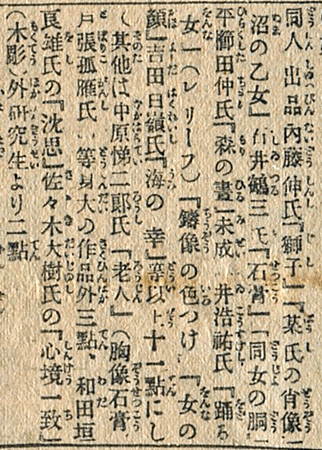 同人 出品內藤伸氏『獅子』『某氏の肖像』
沼の乙女』石井鶴三氏『石膏』『同女の胴』
平櫛田仲氏『森の晝』未成 井浩祐氏『踊る
女』(レリーフ)『鑄像の色つけ』『女の
顏』吉田白嶺氏『海の幸』等以上十一點にし
(其他は中原悌二郎氏『老人』(胸像石膏
戸張孤雁氏 等身大の作品外三點、和田垣
良雄氏の『沈思』佐々木大樹氏の『心境一致』
(木彫)外研究生より二點